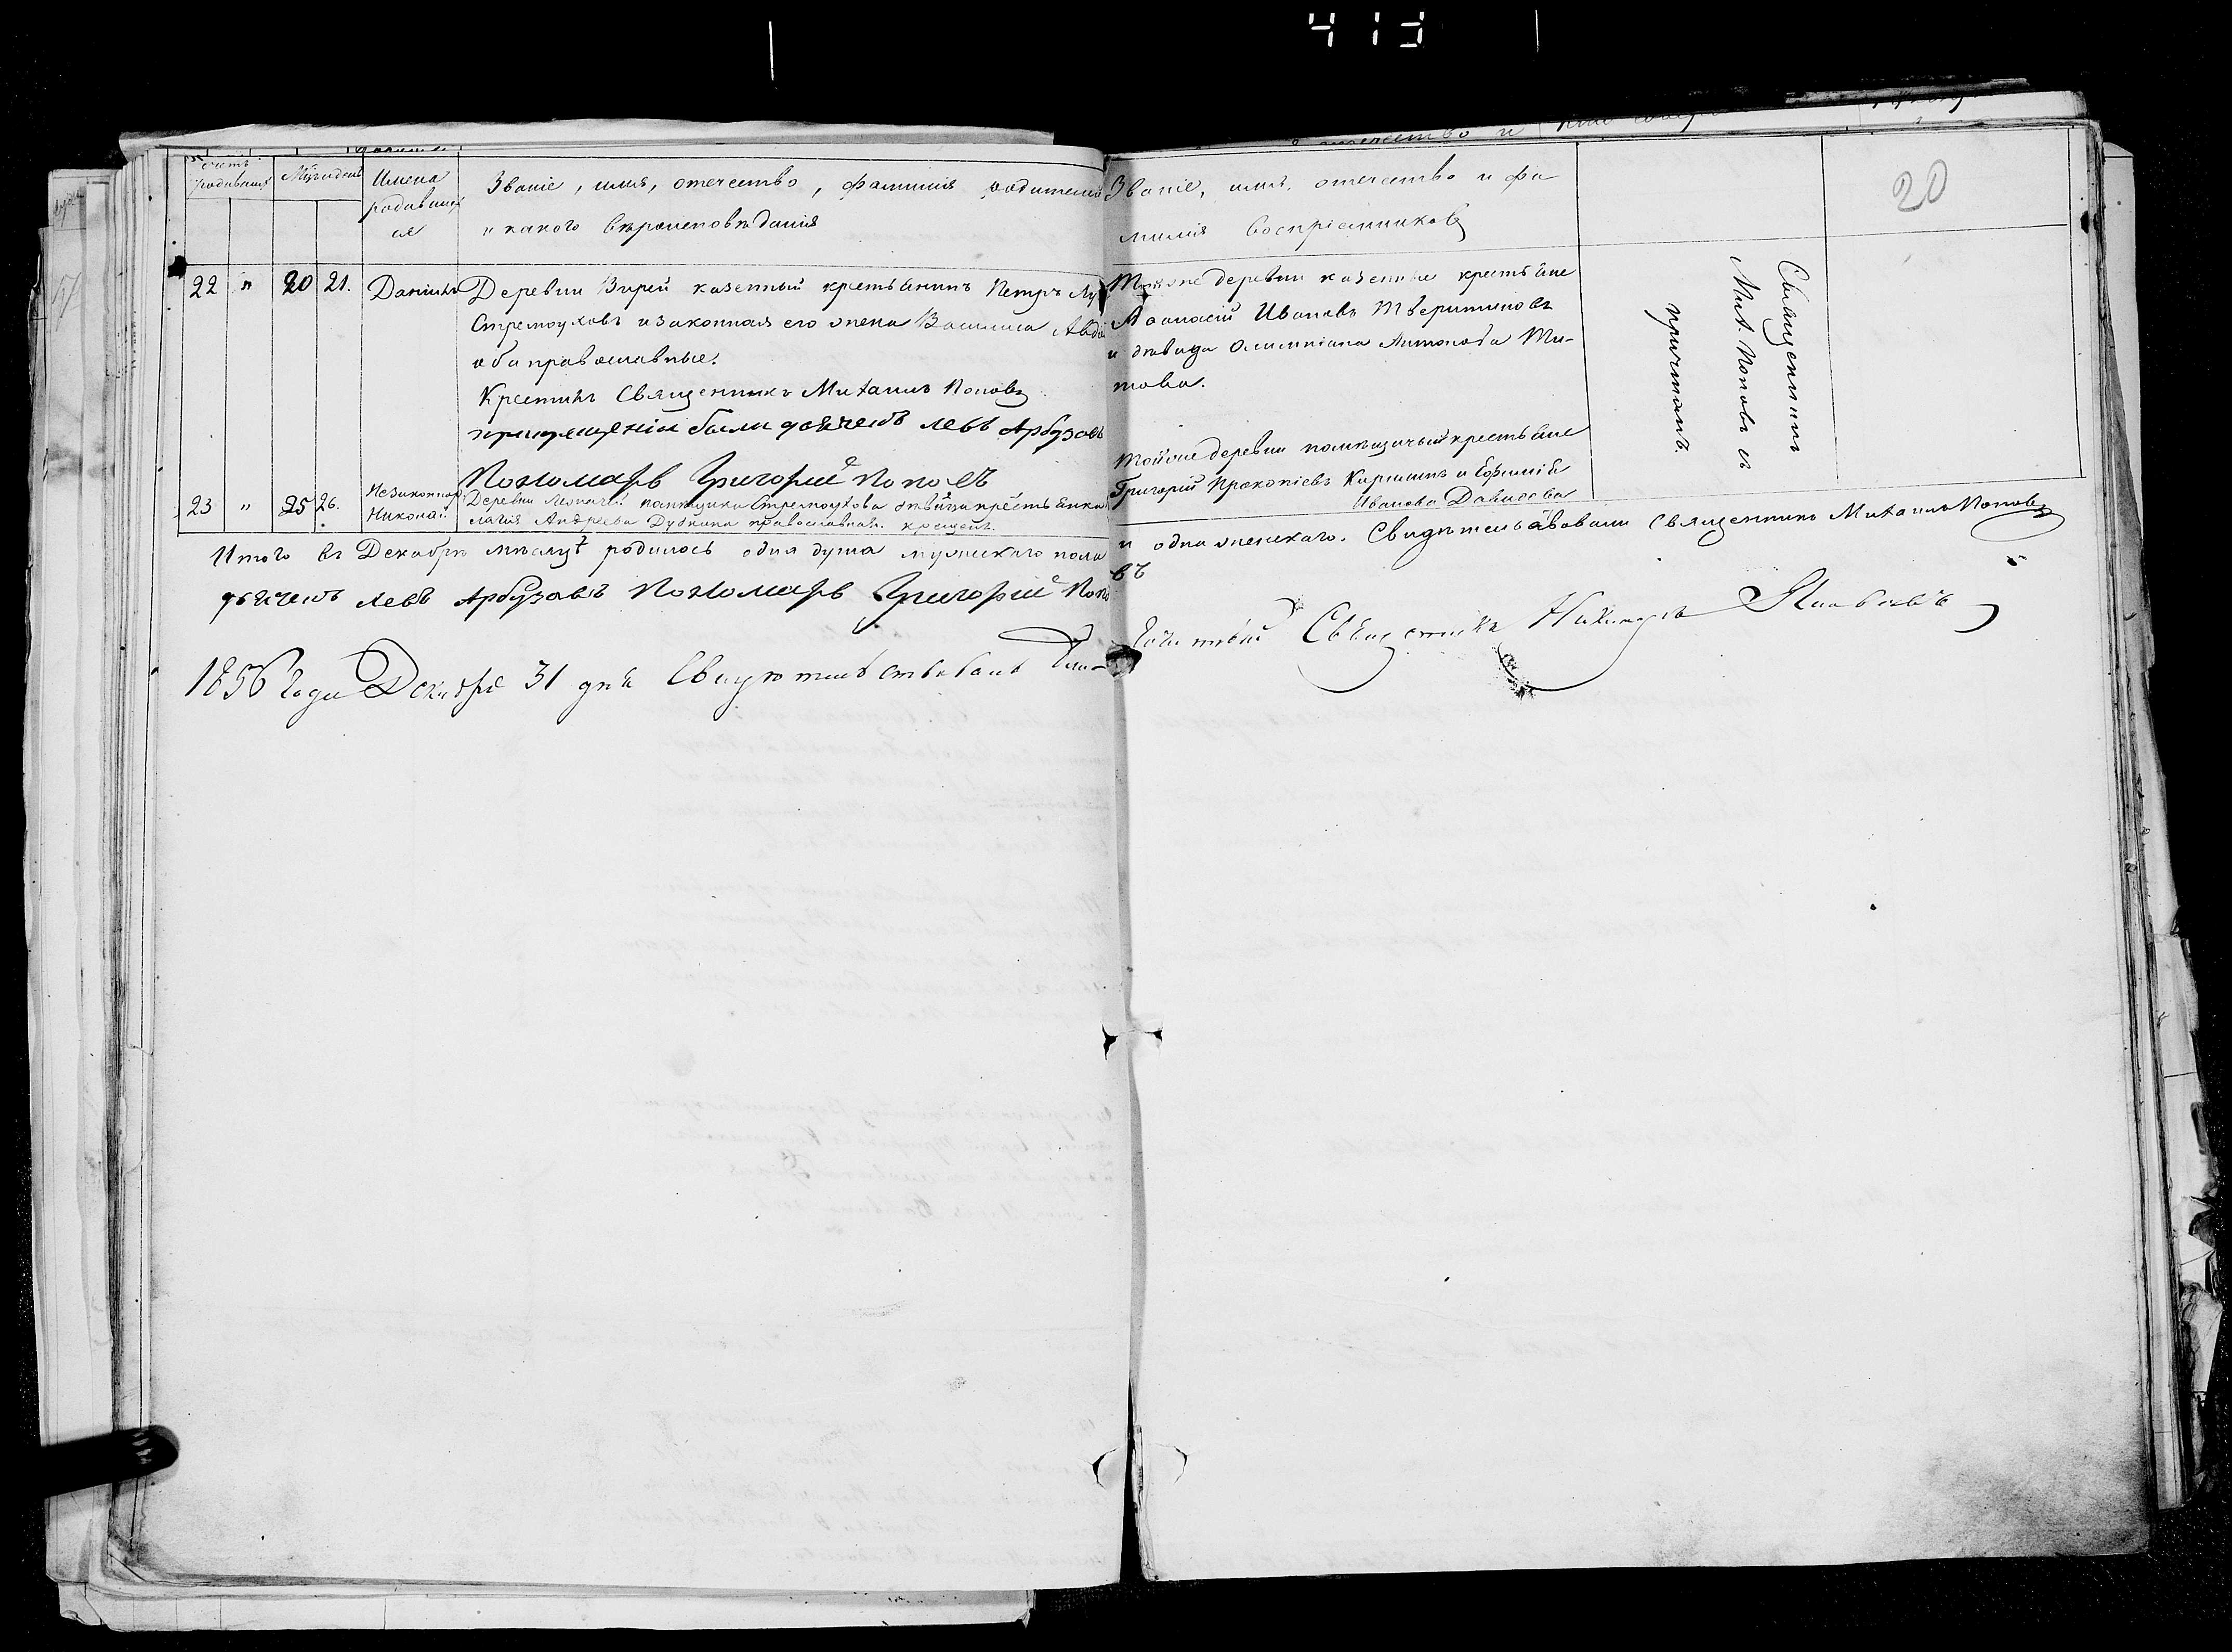 413
20
Счетъ родившихся
Мѣс. и день
Имена родившихся
Званіе, имя, отечество, фамилія родителей
и какого вѣроисповѣданія
Званіе, имя, отечество и фа-
милія воспріемниковъ
22 " 20 21. Даніилъ
Деревни казенный крестьянинъ Петръ
Стремоуховъ и законная его жена Василиса
оба православные.
Крестилъ Священникъ Михаилъ Поповъ
при крещеніи были дьячекъ Левъ Арбузовъ
Пономарь Григорій Поповъ
Тойже деревни казенные крестьяне
Аѳанасій Ивановъ Тверитиновъ
и дѣвица Олимпіана Антонова Ти-
това.
Священникъ
Мих. Поповъ съ
причтомъ.
23 " 25 26. Незаконнор. Николай
Деревни помѣщика Стремоухова дѣвица крестьянка
Андреева Дудкина православная.
Тойже деревни помѣщичьи крестьяне
Григорій Прокопіевъ и Ефимія
Иванова Давыдова
Итого въ Декабрѣ мѣсяцѣ родилось одна душа мужескаго пола
и одна женскаго. Свидѣтельствовали Священникъ Михаилъ Поповъ
дьячекъ Левъ Арбузовъ Пономарь Григорій Попо
въ
1856 года Декабря 31 дня Свидѣтельствовалъ Бла-
гочинный Священникъ Никандръ